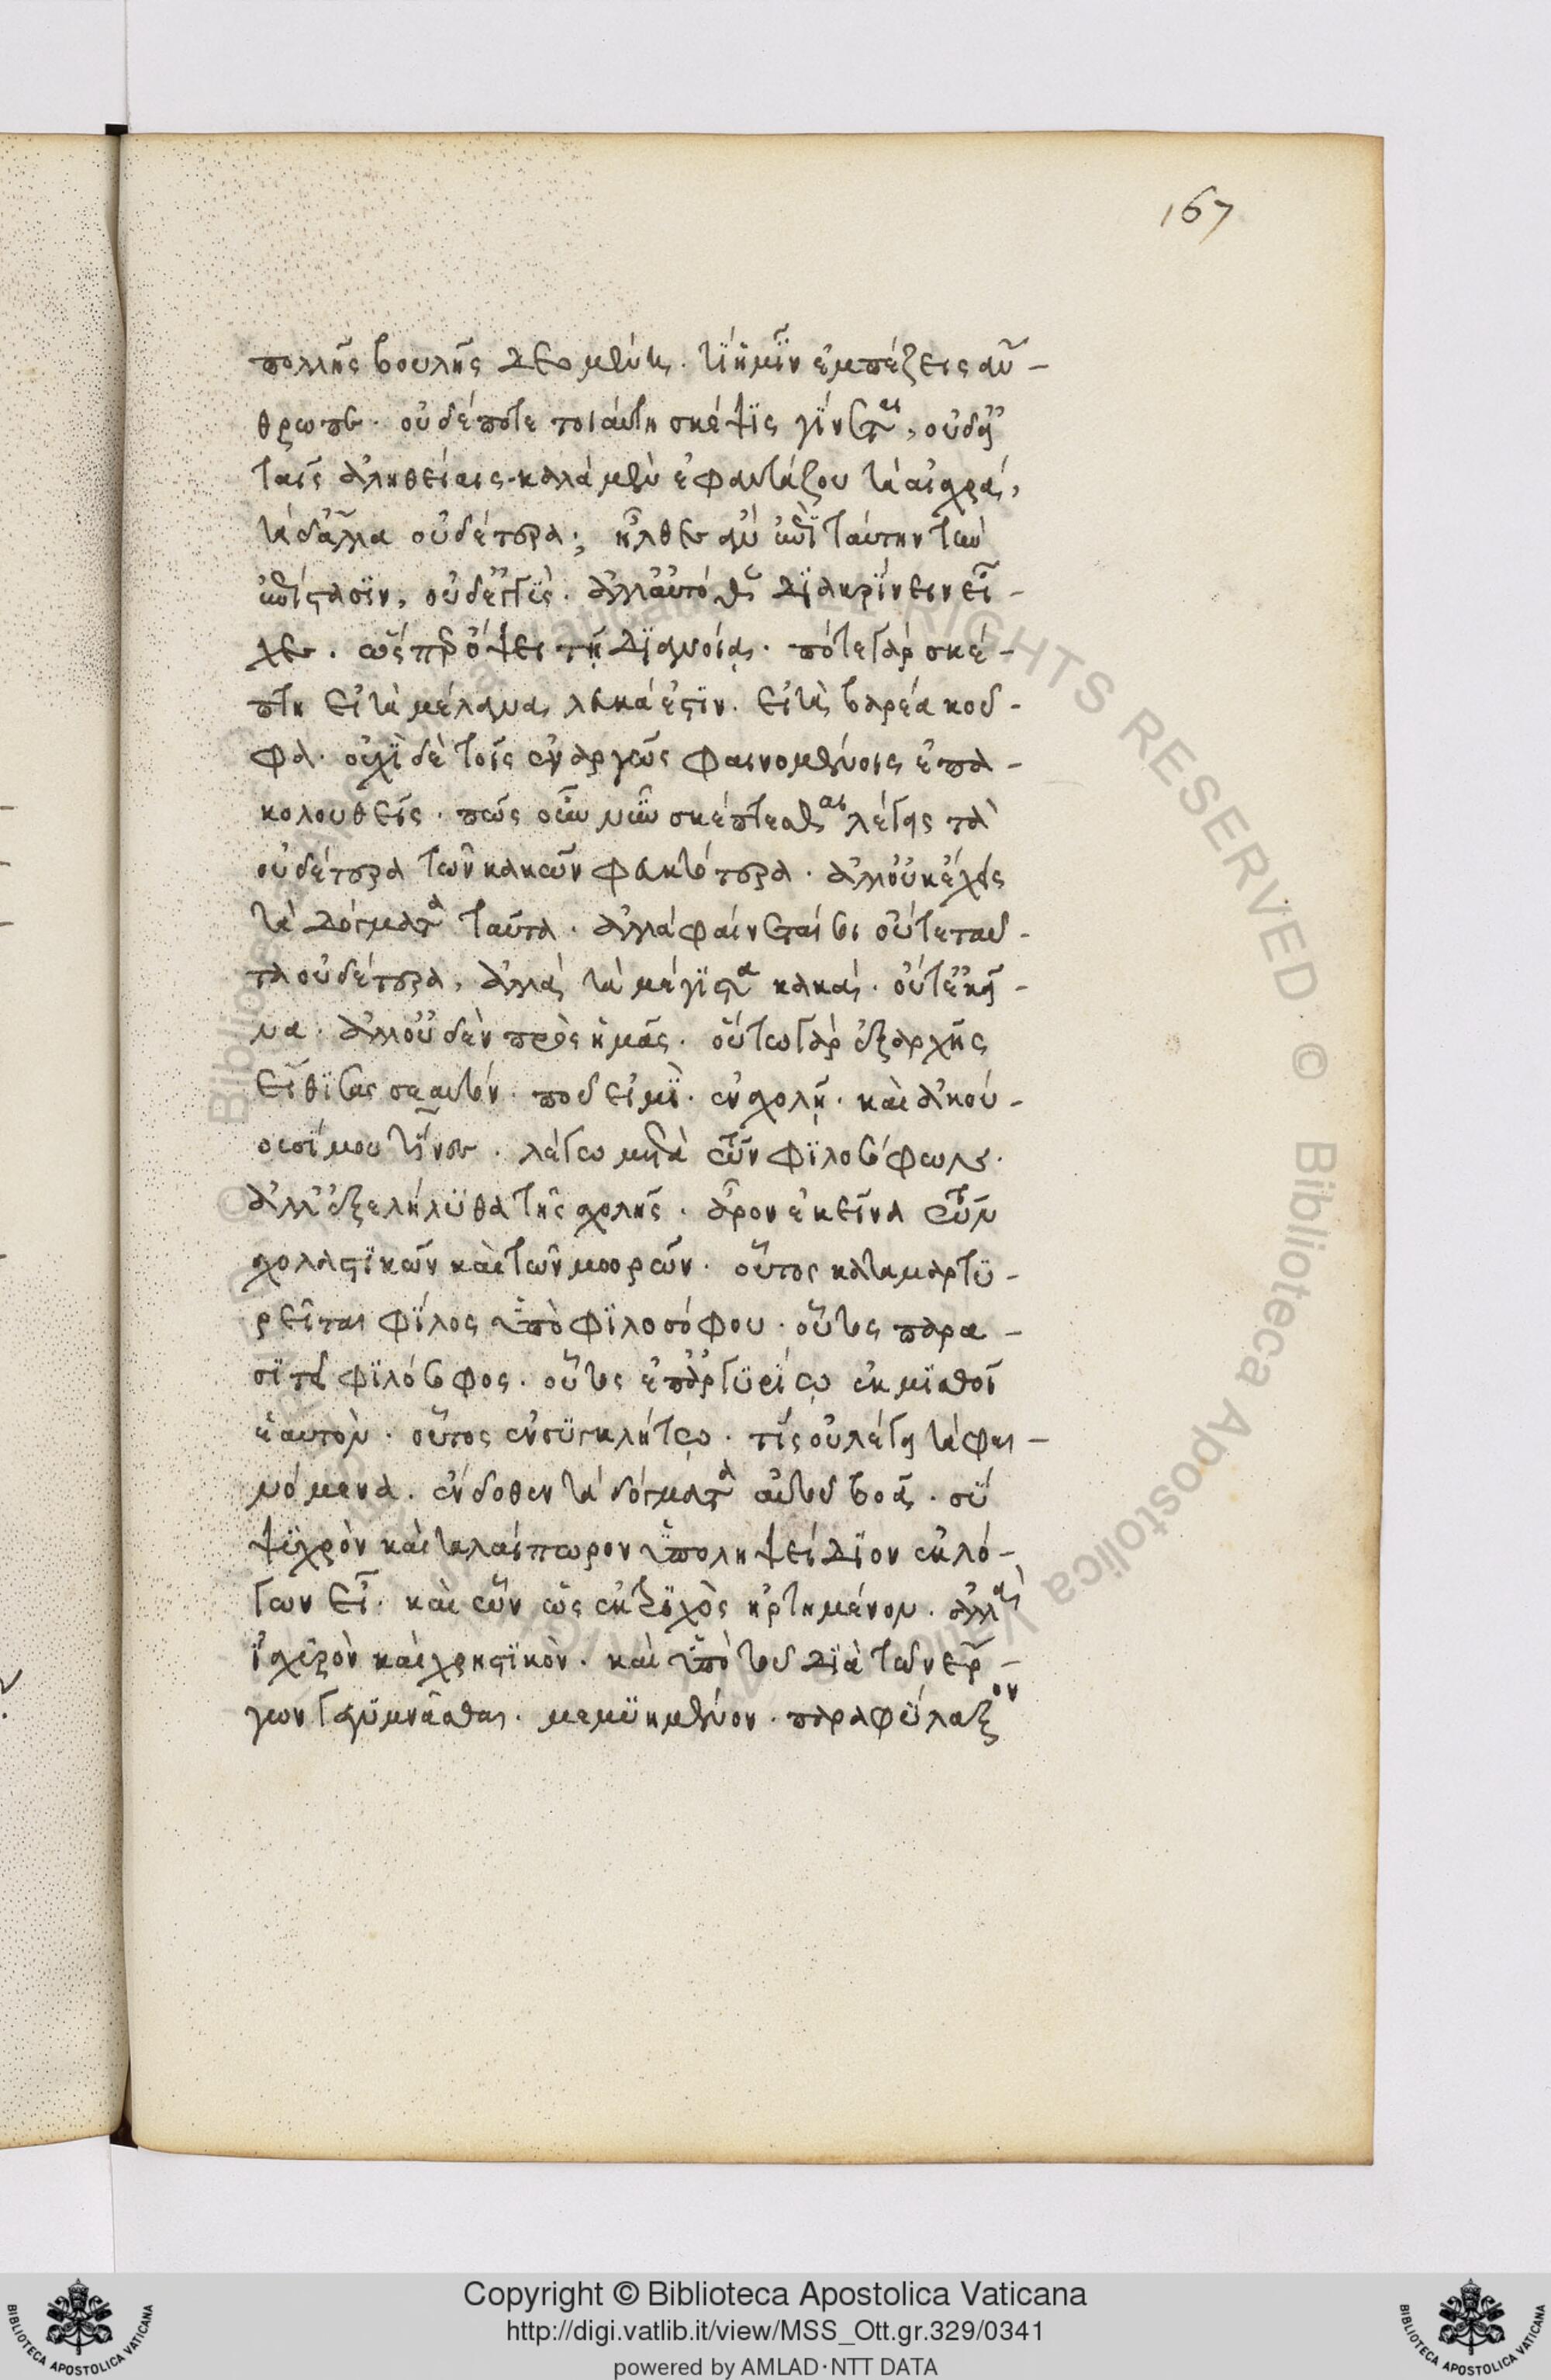 167
πολλῆς βουλῆς δεομένης. τί ἡμῖν ἐμπαίζεις ἄν-
θρωπε. οὐδέποτε τοιαύτη σκέψις γίνεται, οὐδ' εἰ
ταῖς ἀληθείαις. κακὰ μὲν ἐφαντάζου τὰ αἰσχρά,
τὰ δ' ἄλλα οὐδέτερα; ἦλθες ἂν ἐπὶ ταύτην τὴν
ἐπίστασιν, οὐδ' ἐγγύς. ἀλλ' αὐτόθεν διακρίνειν εἶ-
χες. ὥσπερ ὄψει τῇ διανοίᾳ. πότε γὰρ σκέ-
πτη εἰ τὰ μέλανα λευκά ἐστιν. εἰ τὰ βαρέα κοῦ-
φα. οὐχὶ δὲ τοῖς ἐναργῶς φαινομένοις ἐπα-
κολουθεῖς. πῶς οὖν νῦν σκέπτεσθαι λέγεις τὰ
οὐδέτερα τῶν κακῶν φευκτότερα. ἀλλ' οὐκ ἔχεις
τὰ δόγματα ταῦτα. ἀλλὰ φαίνεταί σοι οὔτε ταῦ-
τα οὐδέτερα, ἀλλὰ τὰ μέγιστα κακά. οὔτ' ἐκεῖ-
να. ἀλλ' οὐδὲν πρὸς ἡμᾶς. οὕτω γὰρ ἐξ ἀρχῆς
εἴθισας σεαυτόν. ποῦ εἰμί. ἐν σχολῇ. καὶ ἀκού-
ουσί μου τίνες. λέγω μετὰ τῶν φιλοσόφων.
ἀλλ' ἐξελήλυθα τῆς σχολῆς. ἆρον ἐκεῖνα τὰ τῶν
σχολαστικῶν καὶ τῶν μωρῶν. οὕτως καταμαρτυ-
ρεῖται φίλος ὑπὸ φιλοσόφου. οὕτως παρα-
σιτεῖ φιλόσοφος. οὕτως ἐπ' ἀργυρίῳ ἐκμισθοῖ
ἑαυτόν. οὕτως ἐν συγκλήτῳ. τίς οὐ λέγει τὰ φαι-
νόμενα. ἔνδοθεν τὰ δόγματα αὐτοῦ βοᾷ. σὺ
ψυχρὸν καὶ ταλαίπωρον ὑποληψείδιον ἐκ λό-
γων εἰ. καὶ ὢν ὡς ἐκ τριχὸς ἠρτημένον. ἀλλὰ
ἰσχυρὸν καὶ χρηστικὸν. καὶ ὑπὸ τοῦ διὰ τῶν ἔρ-
γων γεγυμνάσθαι. μεμυημένον. παραφύλαξον
Copyright © Biblioteca Apostolica Vaticana
http://digi.vatlib.it/view/MSS_Ott.gr.329/0341
powered by AMLAD·NTT DATA